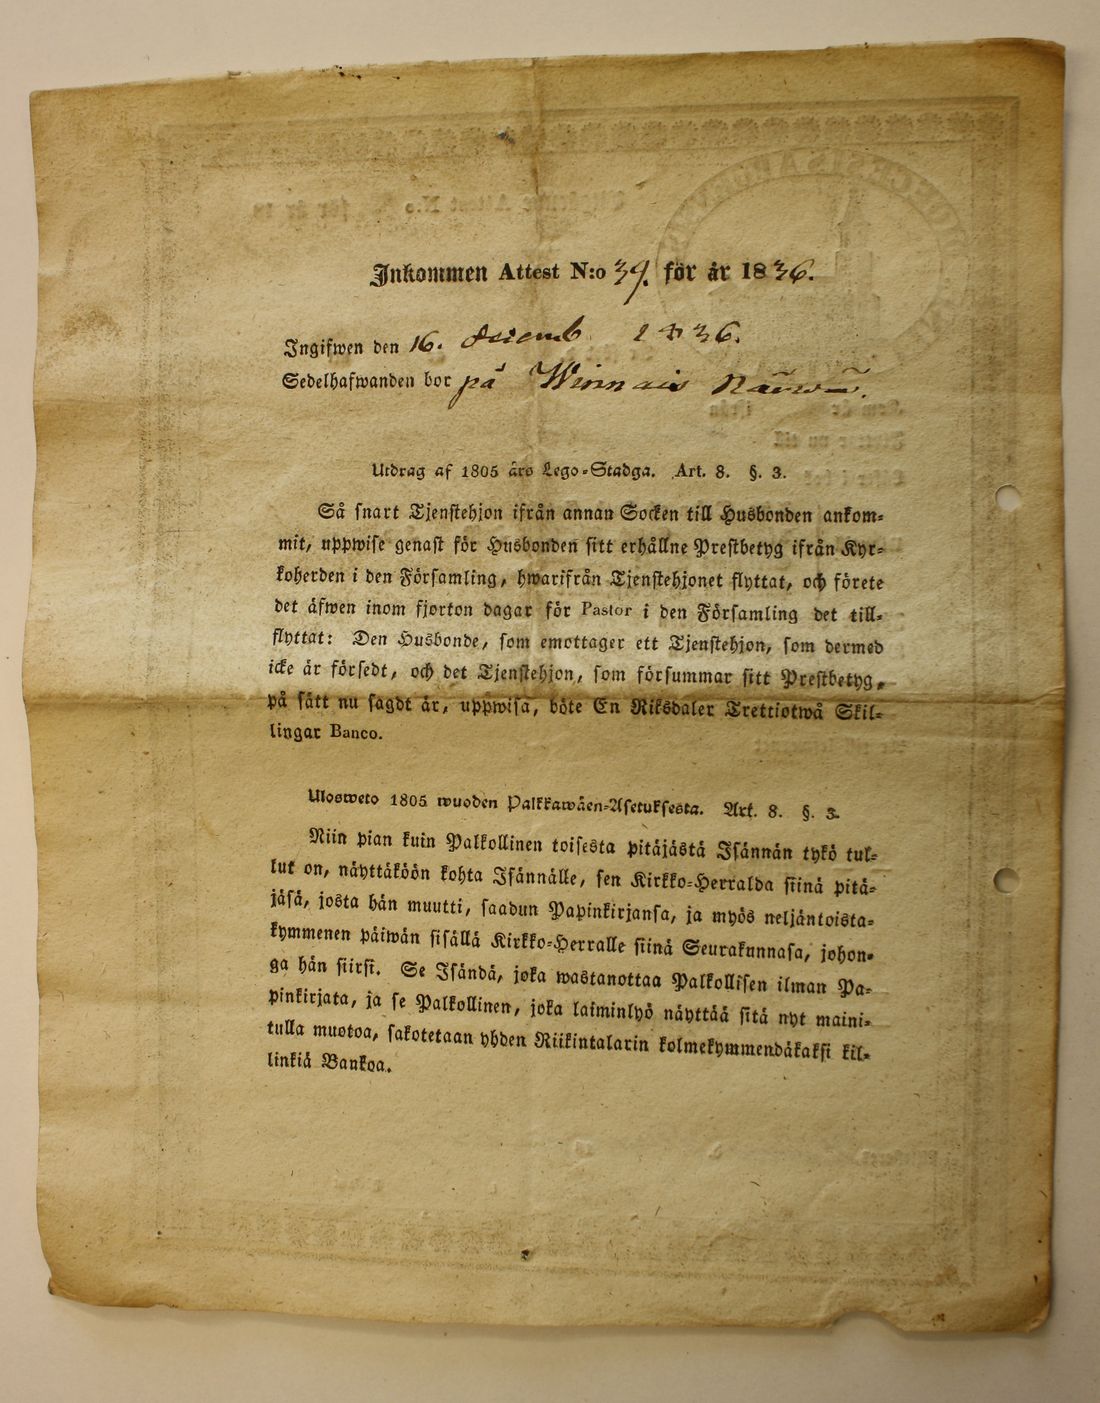 Inkommen Attest N:o 39. för år 1836.
Ingifwen den 16. 1836.
Sedelhafwanden bor på
Utdrag af 1805 års Lego-Stadga. Art. 8. §. 3.
Så snart Tjenstehjon ifrån annan Socken till Husbonden ankom-
mit, uppwise genast för Husbonden sitt erhållne Prestbetyg ifrån Kyr-
koherden i den Församling, hwarifrån Tjenstehjonet flyttat, och förete
det äfwen inom fjorton dagar för Pastor i den Församling det till-
flyttat: Den Husbonde, som emottager ett Tjenstehjon, som dermed
icke är försedt, och det Tjenstehjon, som försummar sitt Prestbetyg,
på sätt nu sagdt är, uppwisa, böte En Riksdaler Trettiotwå Skil-
lingar Banco.
Ulosweto 1805 wuoden Palkkawäen-Asetuksesta. Art. 8. §. 3.
Niin pian kuin Palkollinen toisesta pitäjästä Isännän tykö tul-
lut on, näyttäköön kohta Isännälle, sen Kirkko-Herralda siinä pitä-
jäsä, josta hän muutti, saadun Papinkirjansa, ja myös neljäntoista-
kymmenen päiwän sisällä Kirkko-Herralle siinä Seurakunnasa, johon-
ga hän siirsi. Se Isändä, joka wastanottaa Palkollisen ilman Pa-
pinkirjata, ja se Palkollinen, joka laiminlyö näyttää sitä nyt maini-
tulla muotoa, sakotetaan yhden Riikintalarin kolmekymmendäkaksi kil-
linkiä Bankoa.